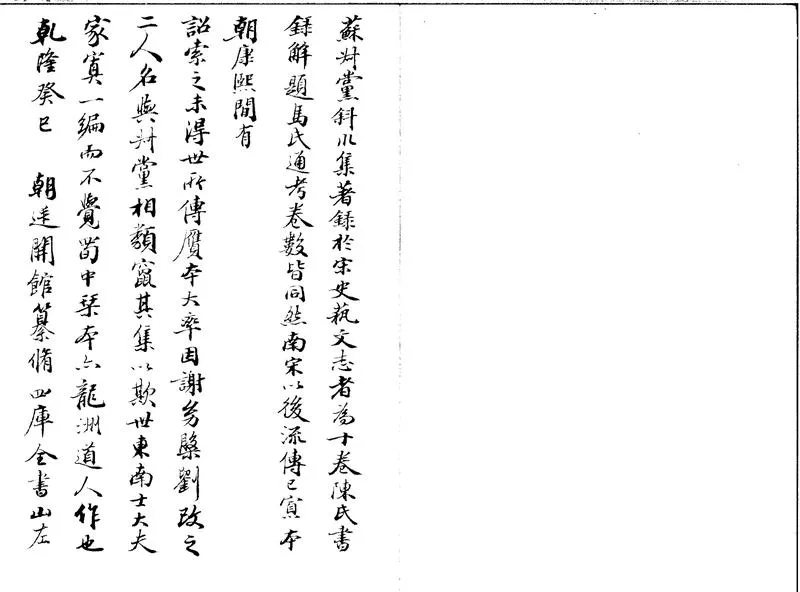 蘇叔黨斜川集著録於宋史藝文志者為十卷陳氏書
録解題馬氏通考卷數皆同然南宋以後流傳已寡本
朝康熙間有
詔索之未得世所傳贗本大率因謝幼槃劉改之
二人名與叔黨相類竄其集以欺世東南士大夫
家寘一編而不覺葡中琹本亦龍洲道人作也
乾隆癸巳 朝廷開館纂脩四庫全書山左